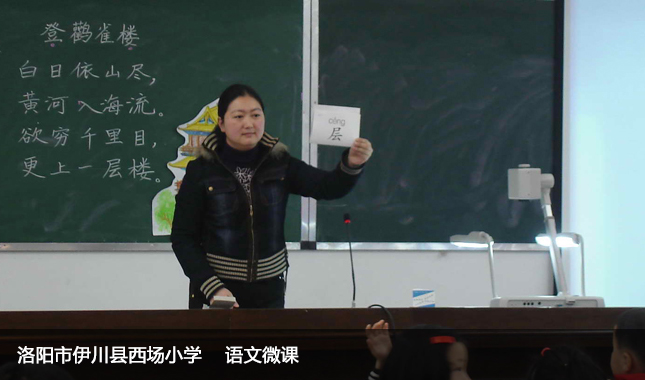 登鹳雀楼
白日依山尽，
黄河入海流。
欲穷千里目，
更上一层楼。
céng
层
洛阳市伊川县西场小学 语文微课